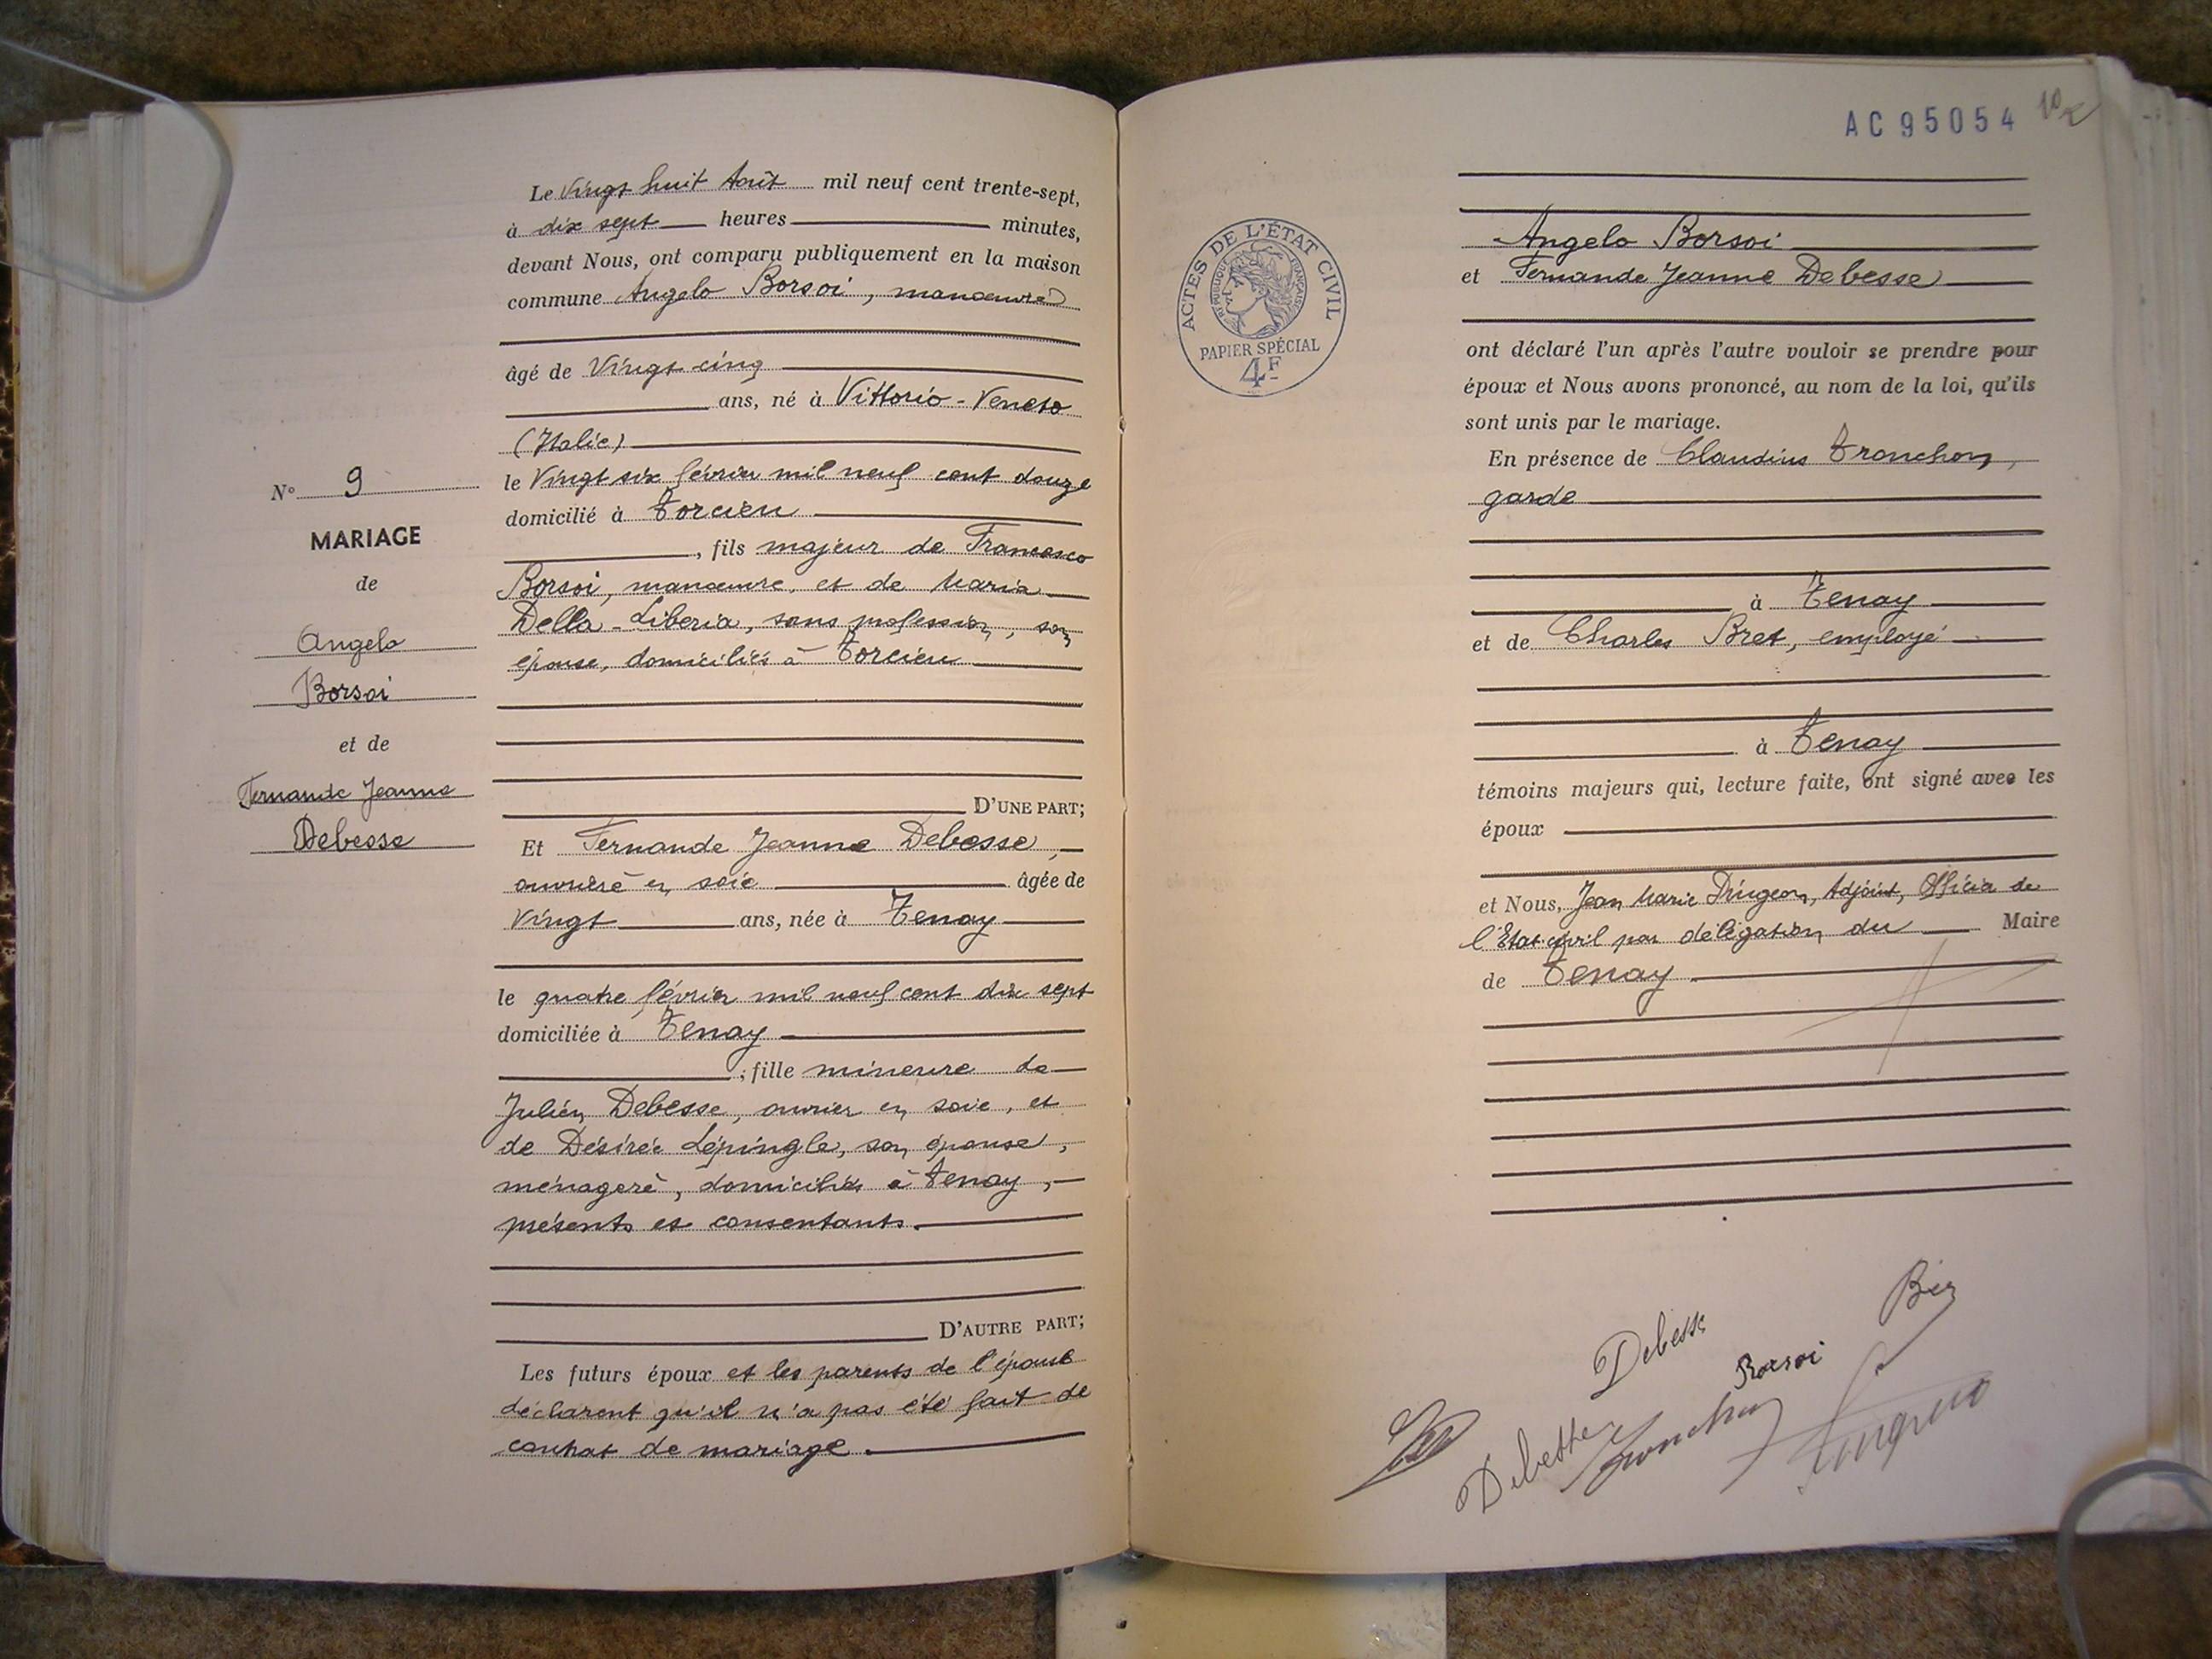 N° 9
MARIAGE
de
Angelo
Borsoi
et de
Fernande Jeanne
Debesse
Le Vingt huit Août mil neuf cent trente-sept,
à dix sept heures minutes,
devant Nous, ont comparu publiquement en la maison
commune Angelo Borsoi, manœuvre
âgé de Vingt cinq
ans, né à Vittorio-Veneto
(Italie)
le Vingt six février mil neuf cent douze
domicilié à Torcieu
, fils majeur de Francesco
Borsoi, manœuvre, et de Maria
Della-Liberia, sans profession, son
épouse, domiciliés à Torcieu
D'UNE PART;
Et Fernande Jeanne Debesse,
ouvrière en soie âgée de
Vingt ans, née à Tenay
le quatre février mil neuf cent dix sept
domiciliée à Tenay
; fille mineure de
Julien Debesse, ouvrier en soie, et
de Désirée Lépingle, son épouse,
ménagère, domiciliés à Tenay,
présents et consentants.
D'AUTRE PART;
Les futurs époux et les parents de l'épouse
déclarent qu'il n'a pas été fait de
contrat de mariage.
AC 95054
ACTES DE L'ÉTAT CIVIL
RÉPUBLIQUE FRANÇAISE
PAPIER SPÉCIAL
4F
Angelo Borsoi
et Fernande Jeanne Debesse
ont déclaré l'un après l'autre vouloir se prendre pour
époux et Nous avons prononcé, au nom de la loi, qu'ils
sont unis par le mariage.
En présence de Claudius Tronchon,
garde
à Tenay
et de Charles Bret, employé
à Tenay
témoins majeurs qui, lecture faite, ont signé avec les
époux
et Nous, Jean Marie Dringeon, Adjoint, Officier de
l'Etat civil par délégation du Maire
de Tenay
Debesse
Borsoi
Tronchon